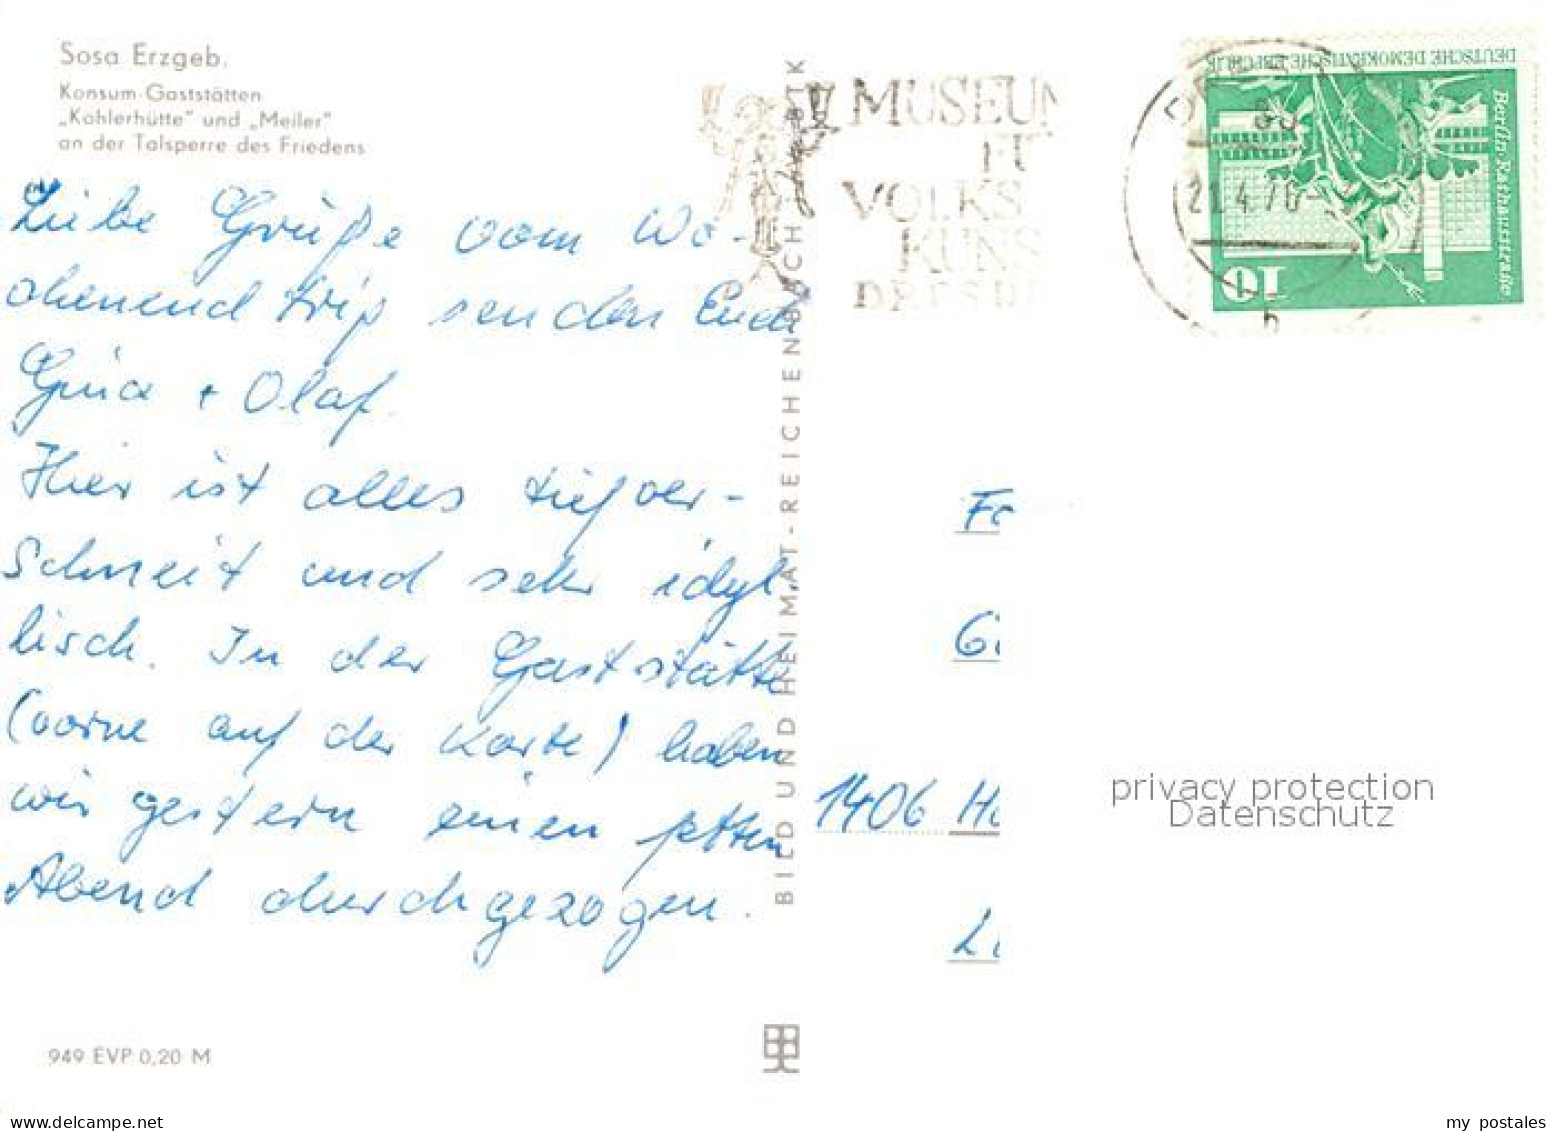 Sosa Erzgeb.
Konsum-Gaststätten
„Köhlerhütte" und „Meiler"
an der Talsperre des Friedens
Liebe Grüße vom Wo-
chenendtrip senden Euch
+ Olaf.
Hier ist alles tiefver-
schneit und sehr idyl
lisch. In der Gaststätte
(vorne auf der Karte) haben
wir gestern einen netten
Abend durchgezogen.
949 EVP 0,20 M
BILD UND HEIMAT-REICHENBACH
MUSEUM
VOLKS
KUNS
DRESD
21.4.76
DEUTSCHE DEMOKRATISCHE REPUBLIK
Berlin-Rathausstraße
10
Fa
1406 Ho
privacy protection
Datenschutz
www.delcampe.net
my_postales